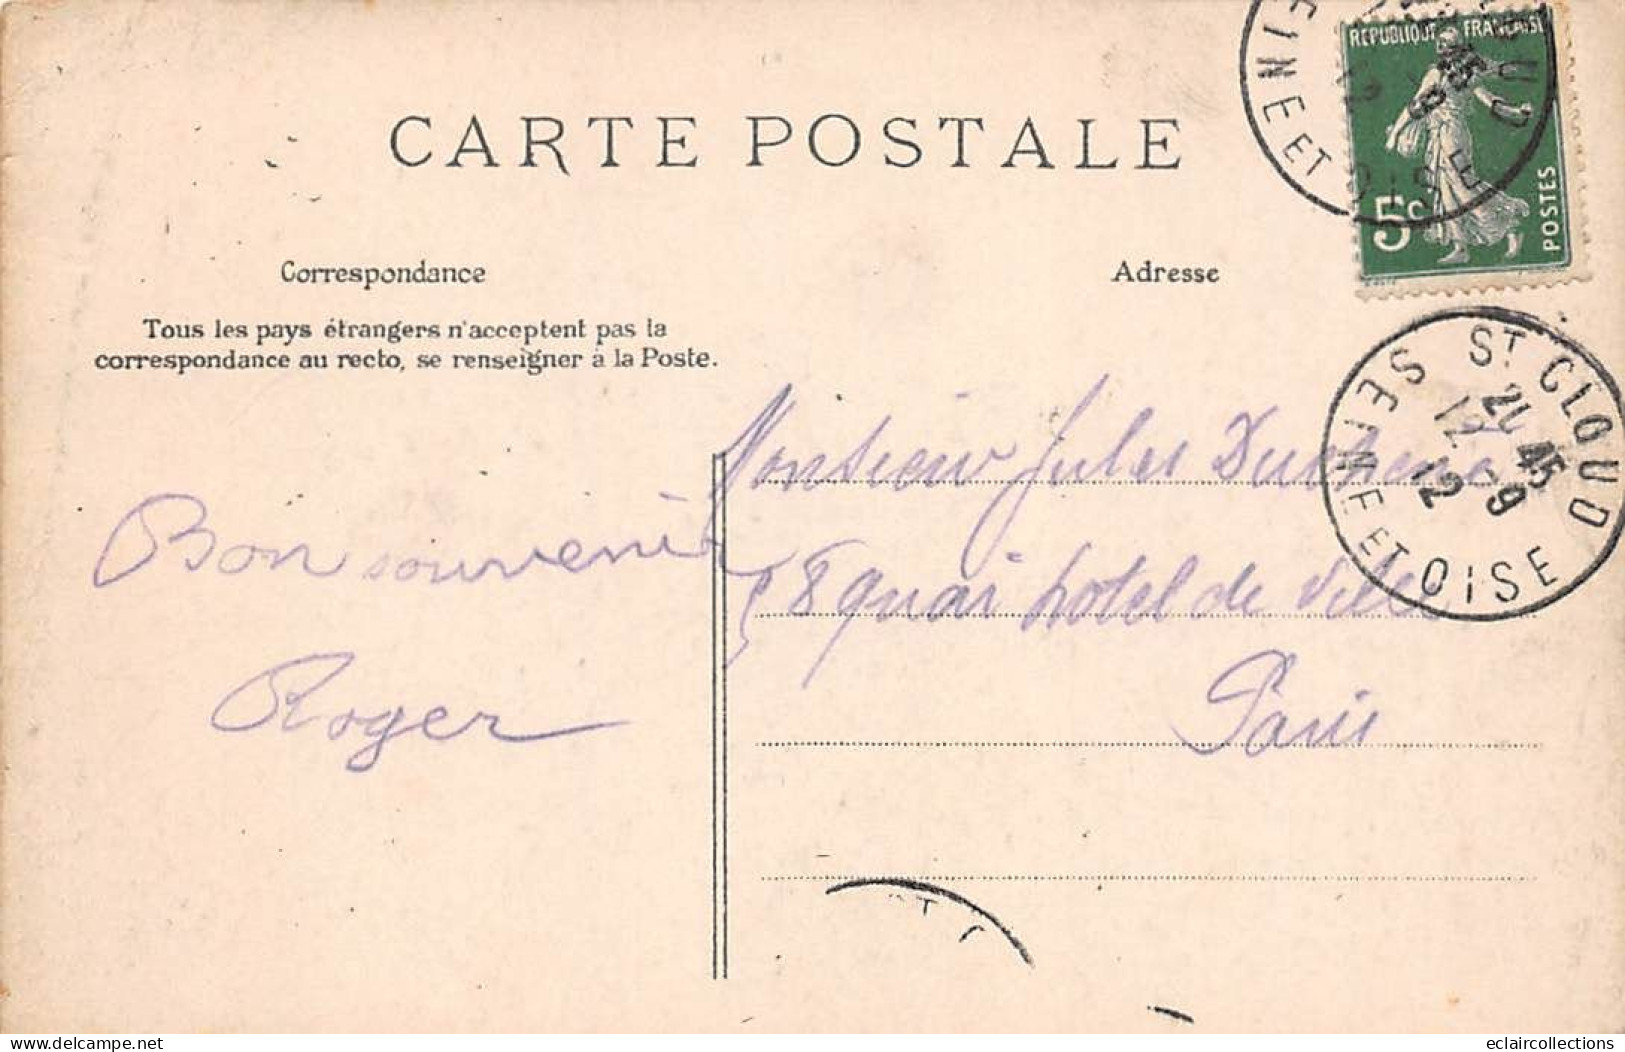 CARTE POSTALE
Correspondance
Tous les pays étrangers n'acceptent pas la
correspondance au recto, se renseigner à la Poste.
Bon souvenir
Roger
Adresse
Monsieur Jules
58 quai hotel de ville
Paris
REPUBLIQUE FRANÇAISE
5c
POSTES
SEINE ET OISE
ST CLOUD
21 45
12 -9
12
SEINE ET OISE
www.delcampe.net
eclaircollections